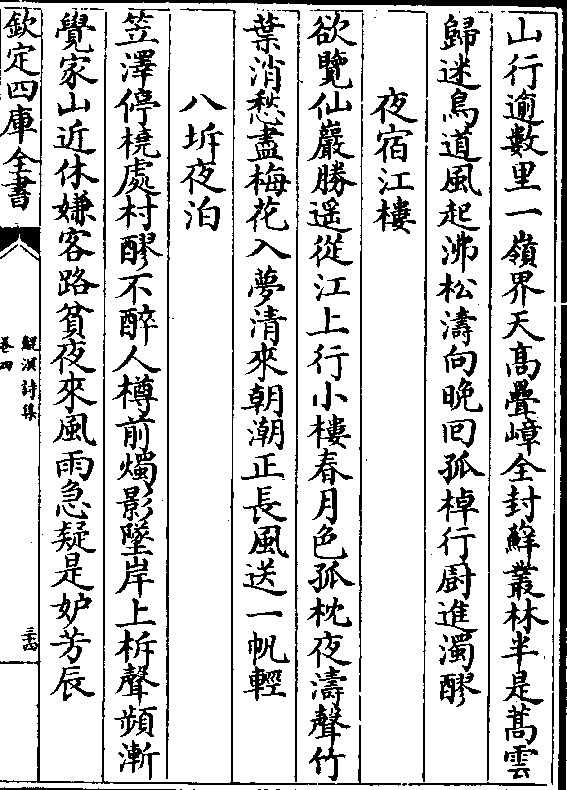 山行逾數里一嶺界天髙疊嶂全封蘚叢林半是蒿雲
歸迷鳥道風起沸松濤向晚囘孤棹行厨進濁醪
夜宿江樓
欲覽仙巖勝遥從江上行小樓春月色孤枕夜濤聲竹
葉消愁盡梅花入夢清來朝潮正長風送一帆輕
八坼夜泊
笠澤停橈處村醪不醉人樽前燭影墜岸上柝聲頻漸
覺家山近休嫌客路貧夜來風雨急疑是妒芳辰
欽定四庫全書
鯤溟詩集
卷四